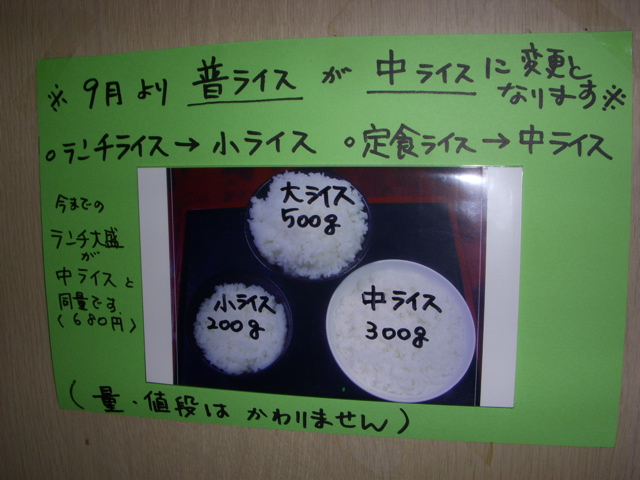 ※9月より 普ライス が 中ライスに変更と
なります※
○ランチライス→小ライス ○定食ライス→中ライス
今までの
ランチ大盛
が
中ライスと
同量です.
(680円)
大ライス
500g
小ライス
200g
中ライス
300g
(量・値段は かわりません)